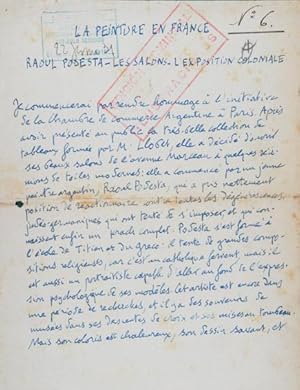 N° 6.
LA PEINTURE EN FRANCE
RAOUL PODESTA - LES SALONS. L'EXPOSITION COLONIALE
Je commencerai par rendre hommage à l'initiative
de la Chambre de commerce Argentine à Paris. Après
avoir présenté au public la très belle collection de
tableaux formée par M. Llobet, elle a décidé d'ouvrir
ses beaux salons de l'avenue Marceau à quelques
moins de toiles modernes: elle a commencé par un jeune
peintre argentin, Raoul Podesta, qui a pris nettement
position de réactionnaire contre toutes les dégénérescences
judéo-germaniques qui ont tenté de s'imposer et qui
enfin un krach complet. Podesta s'est formé à
l'école de Titien et du Greco: il tente de grandes compo-
sitions religieuses, car c'est un catholique fervent, mais il
est aussi un portraitiste capable d'aller au fond de l'expres-
sion psychologique de ses modèles. Cet artiste est encore dans
une période de recherches et il y a des souvenirs de
musées dans ses descentes de croix et ses mises au tombeau.
Mais son coloris est chaleureux, son dessin savant, et